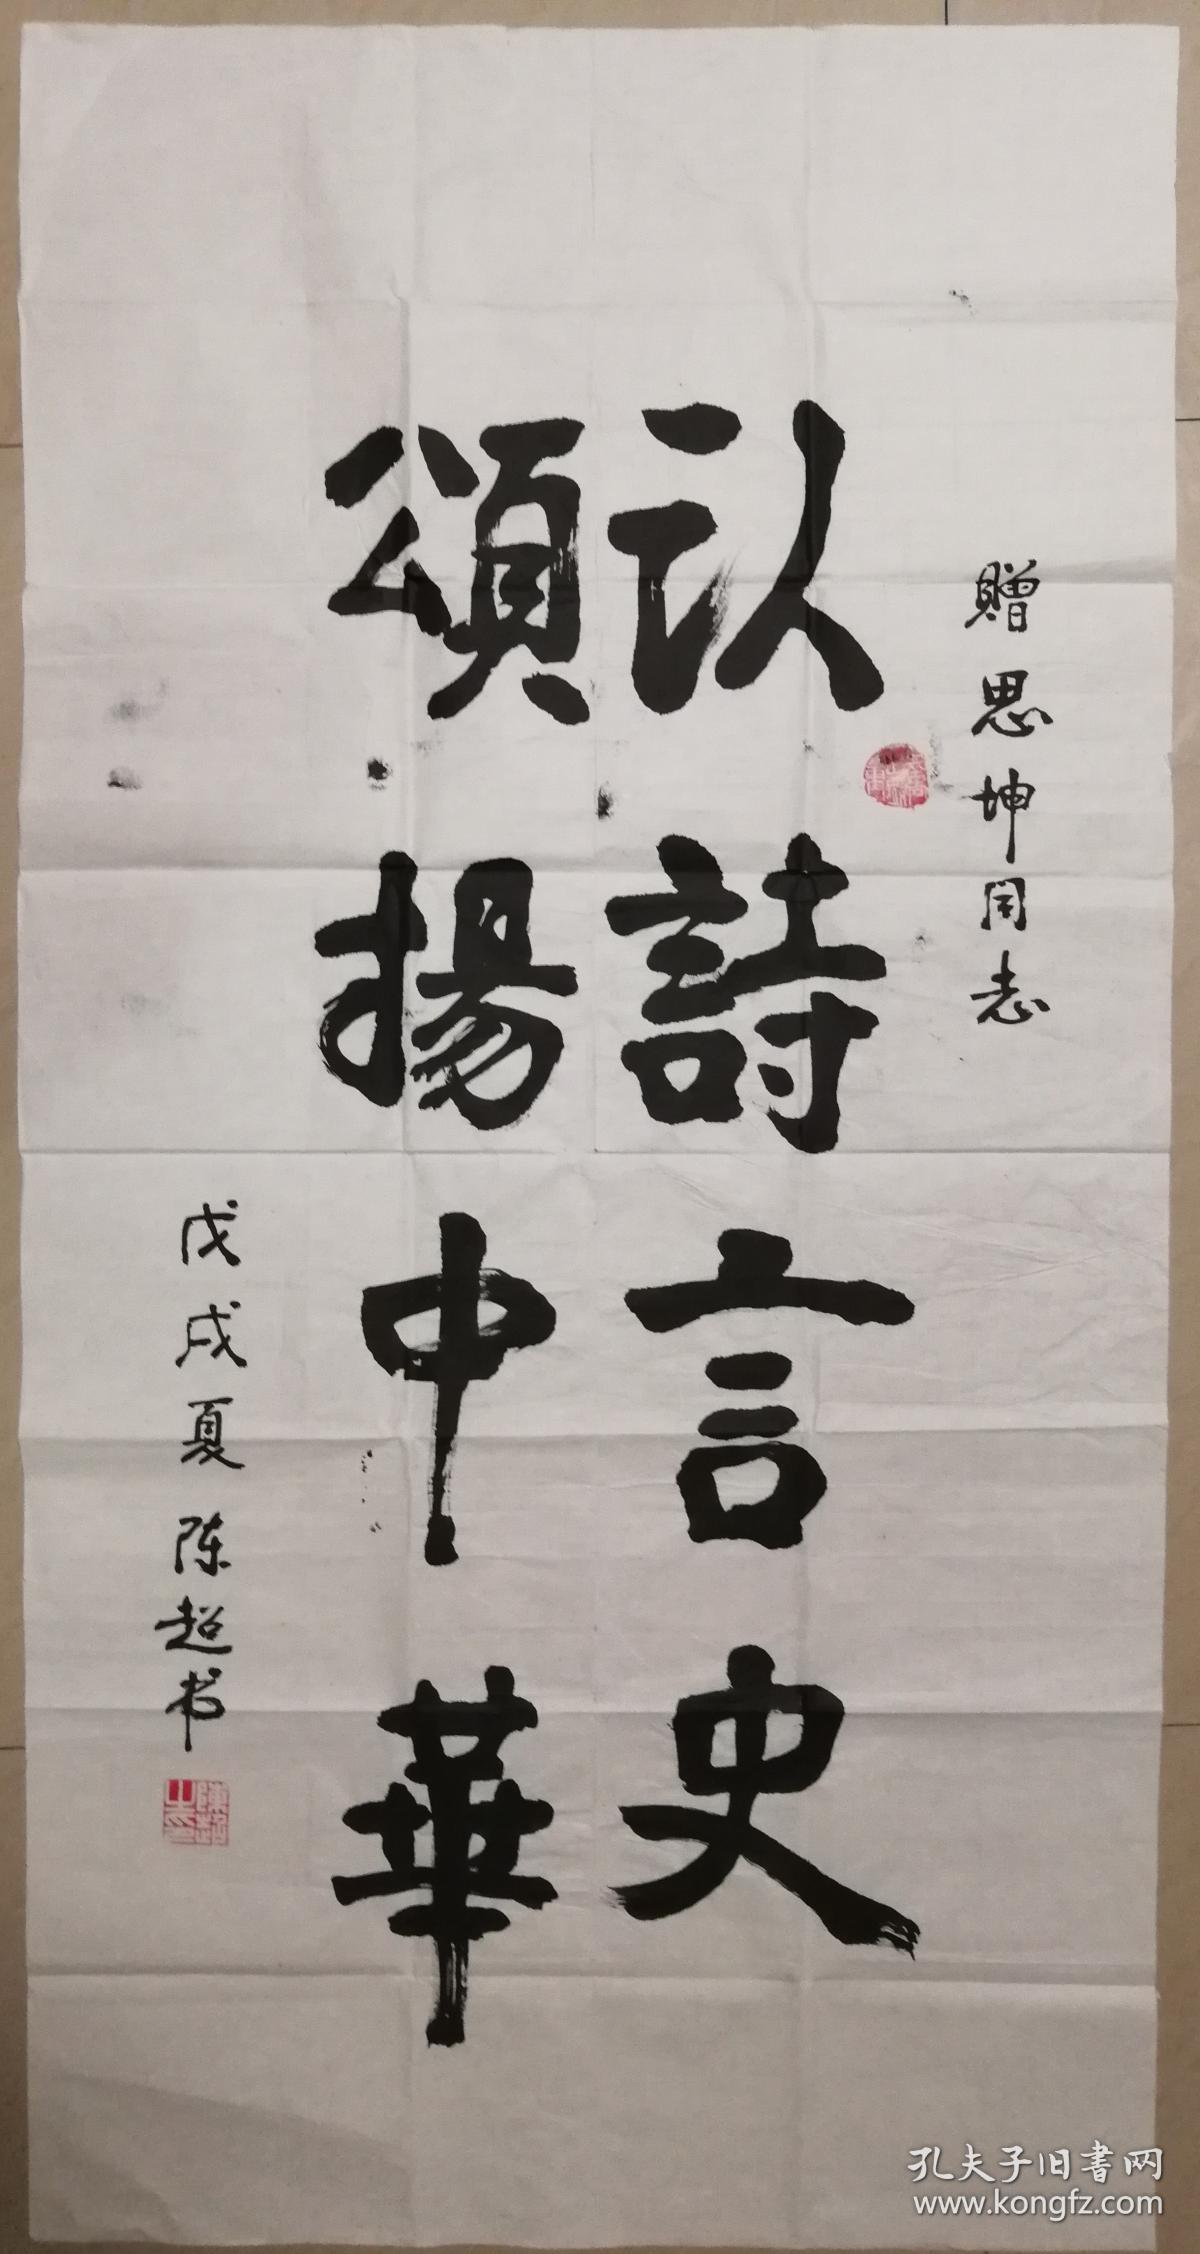 贈思坤同志
以詩言史
頌揚中華
戊戌夏 陈超书
陳超之印
孔夫子旧書网
www.kongfz.com